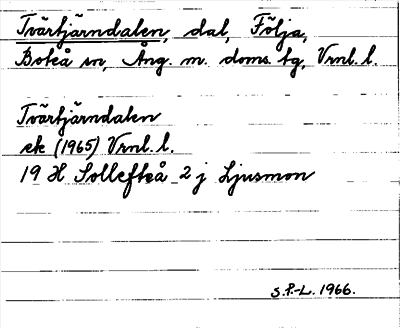 Tvärtjärndalen, dal, Följa,
Boteå sn, Ång. m. doms. tg, Vrnl. l.
Tvärtjärndalen
ek (1965) Vrnl. l.
19 H Sollefteå 2 j Ljusmon
S.P.-L. 1966.